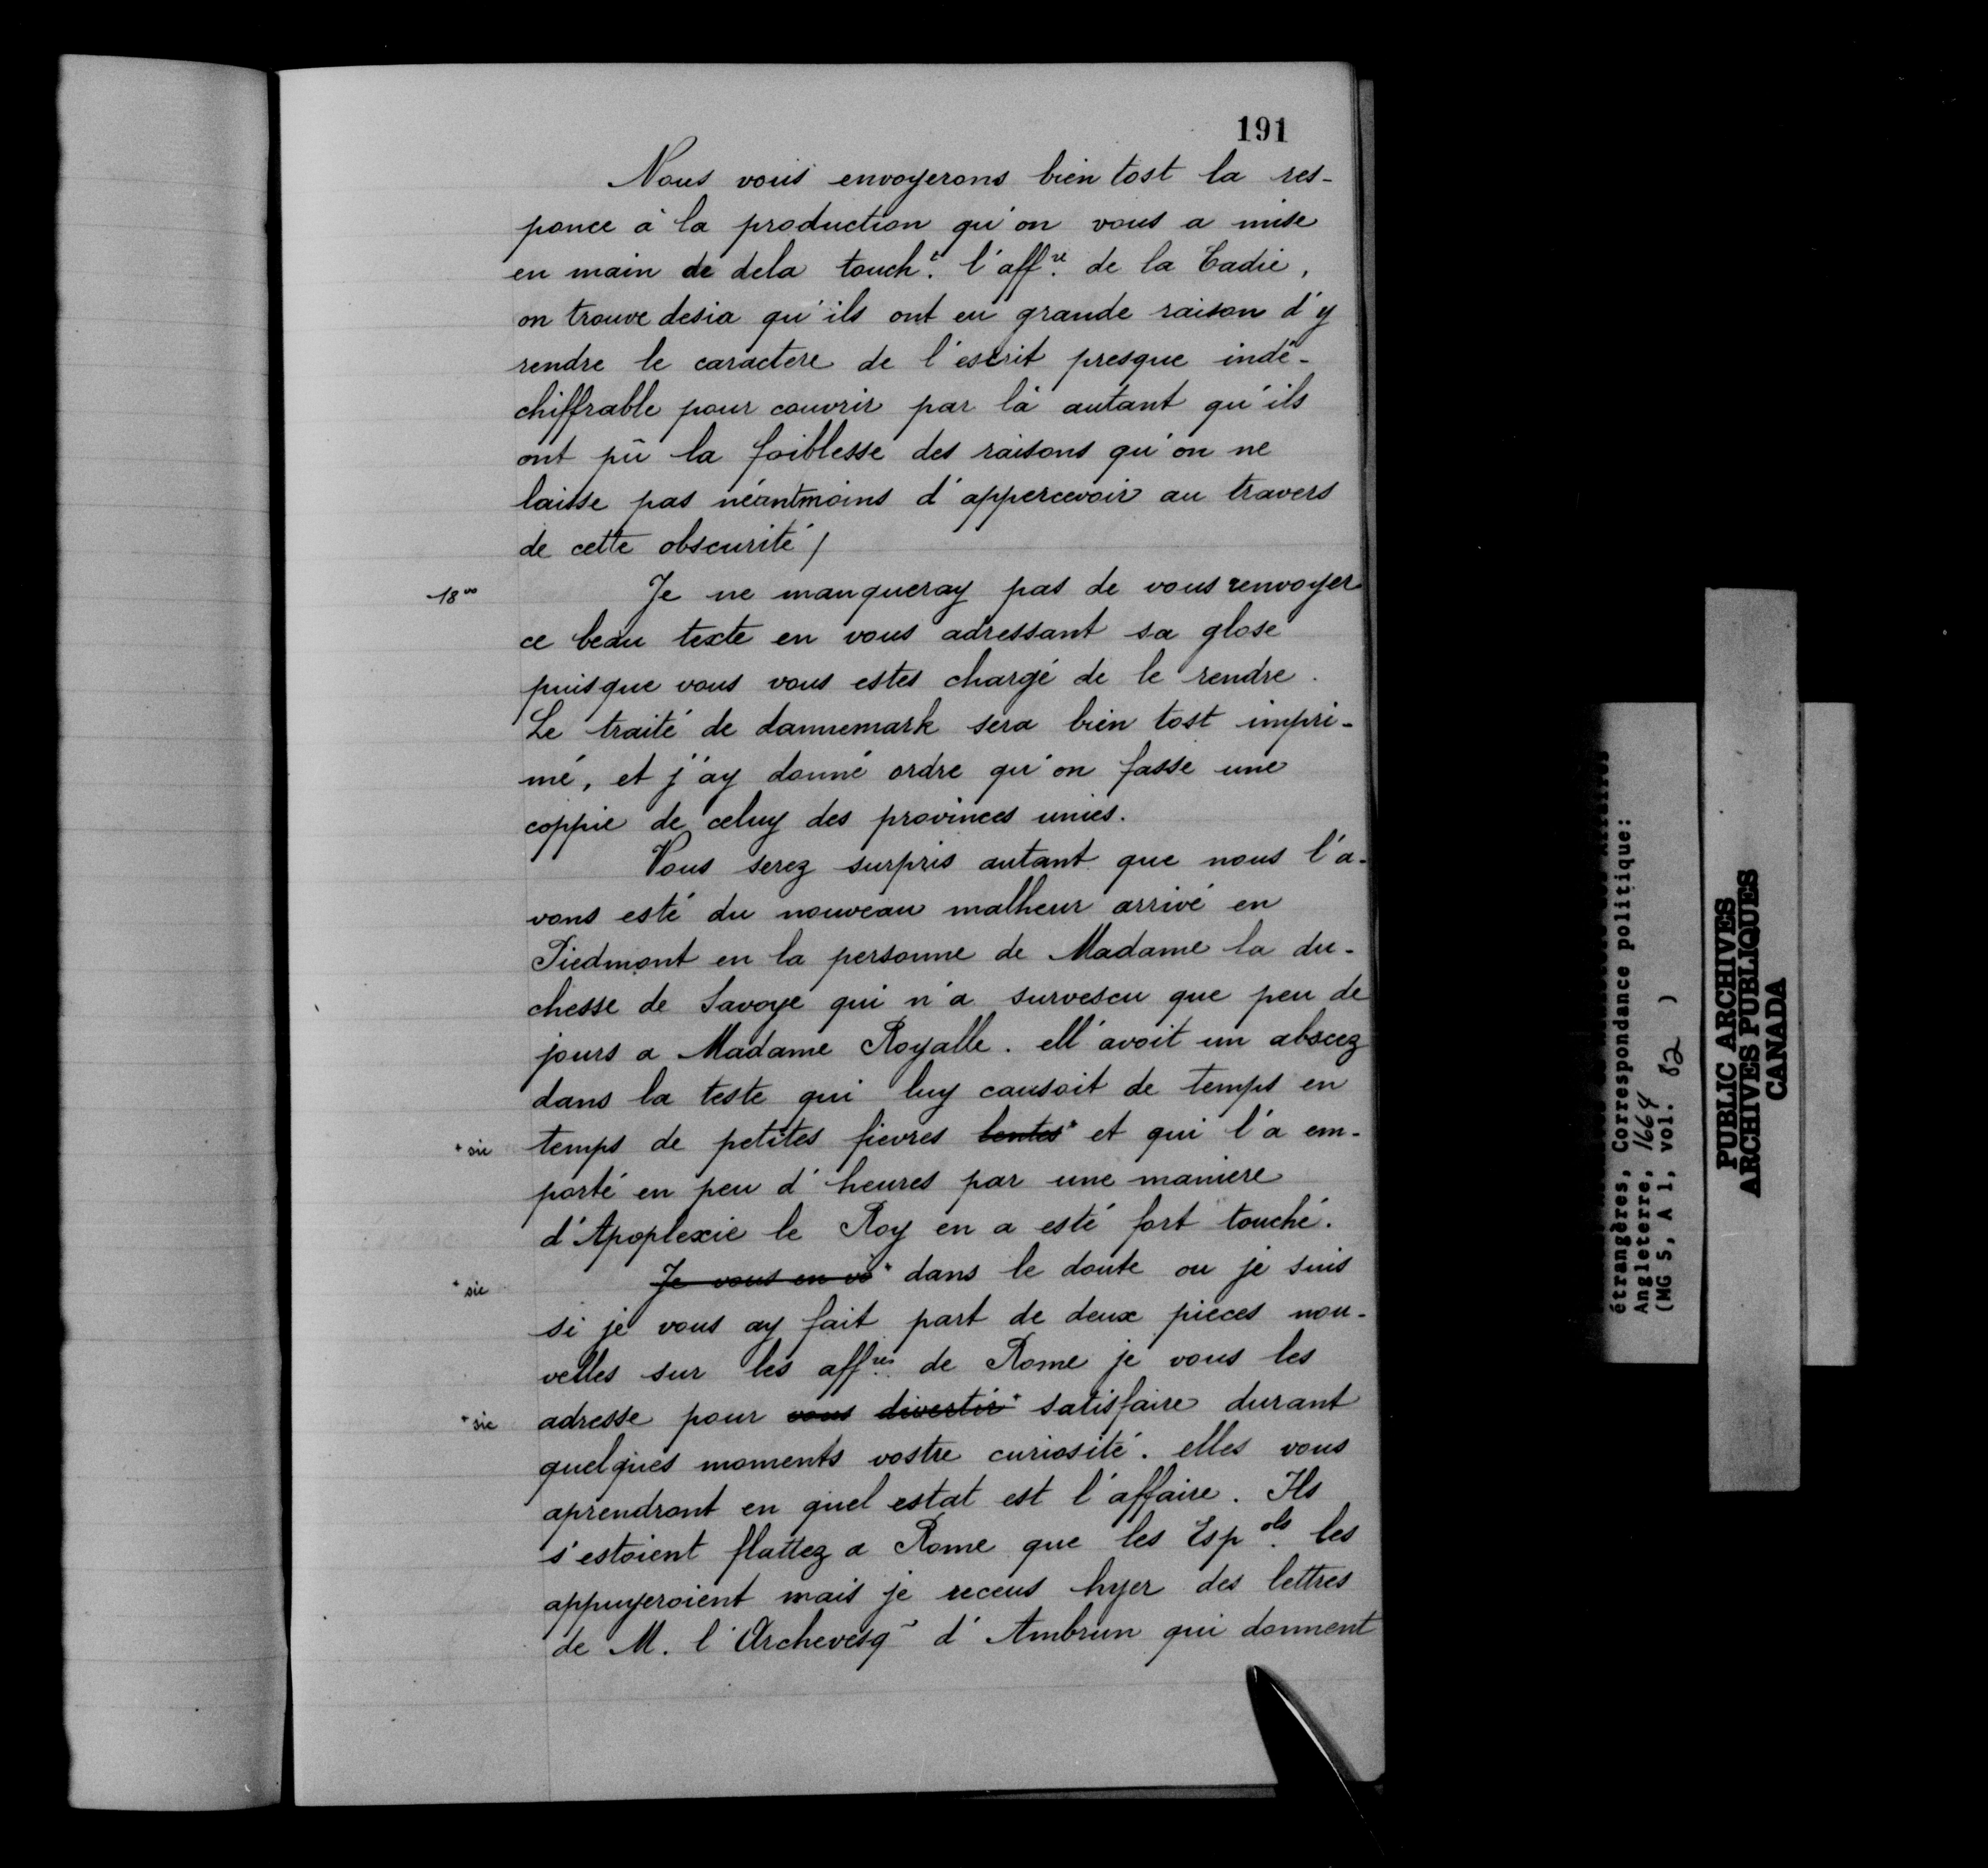 191
Nous vous envoyerons bien tost la res-
ponce à la production qu'on vous a mise
en main de dela touch.t l'aff.re de la Cadie,
on trouve desia qu'ils ont eu grande raison d'y
rendre le caractere de l'escrit presque indé-
chiffrable pour couvrir par là autant qu'ils
ont pû la foiblesse des raisons qu'on ne
laisse pas néantmoins d'appercevoir au travers
de cette obscurité /
18vo
Je ne manqueray pas de vous renvoyer
ce beau texte en vous adressant sa glose
puisque vous vous estes chargé de le rendre.
Le traité de dannemark sera bien tost impri-
mé, et j'ay donné ordre qu'on fasse une
coppie de celuy des provinces unies.
Vous serez surpris autant que nous l'a-
vons esté du nouveau malheur arrivé en
Piedmont en la personne de Madame la du-
chesse de Savoye qui n'a survescu que peu de
jours a Madame Royalle. ell'avoit un abscez
dans la teste qui luy causoit de temps en
+ sic temps de petites fievres lentes+ et qui l'a em-
porté en peu d'heures par une maniere
d'Apoplexie le Roy en a esté fort touché.
+ sic Je vous en vo+ dans le doute ou je suis
si je vous ay fait part de deux pieces nou-
velles sur les aff.res de Rome je vous les
+ sic adresse pour vous divertir+ satisfaire durant
quelques moments vostre curiosité. elles vous
aprendront en quel estat est l'affaire. Ils
s'estoient flattez a Rome que les Esp.ols les
appuyeroient mais je receus hyer des lettres
de M. l'Archevesq~ d'Ambrun qui donnent
étrangères, Correspondance politique:
Angleterre, 1664
(MG 5, A 1, vol. 82 )
PUBLIC ARCHIVES
ARCHIVES PUBLIQUES
CANADA